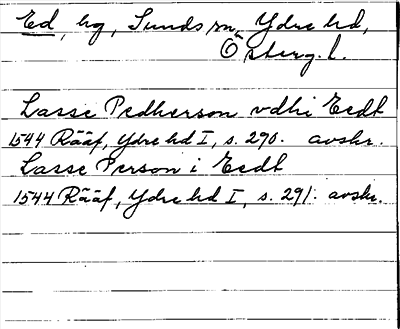 Ed, hg, Sunds sn, Ydre hd,
Österg. l.
Lasse Pedherson vdhi Eedt
1544 Rääf, Ydre hd I, s. 290. avskr.
Lasse Person i Eedt
1544 Rääf, Ydre hd I, s. 291. avskr.